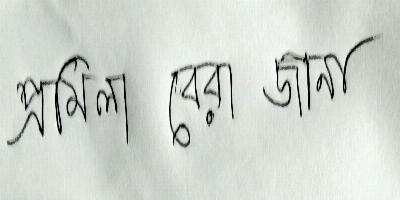 প্রমিলা বেরা জানা